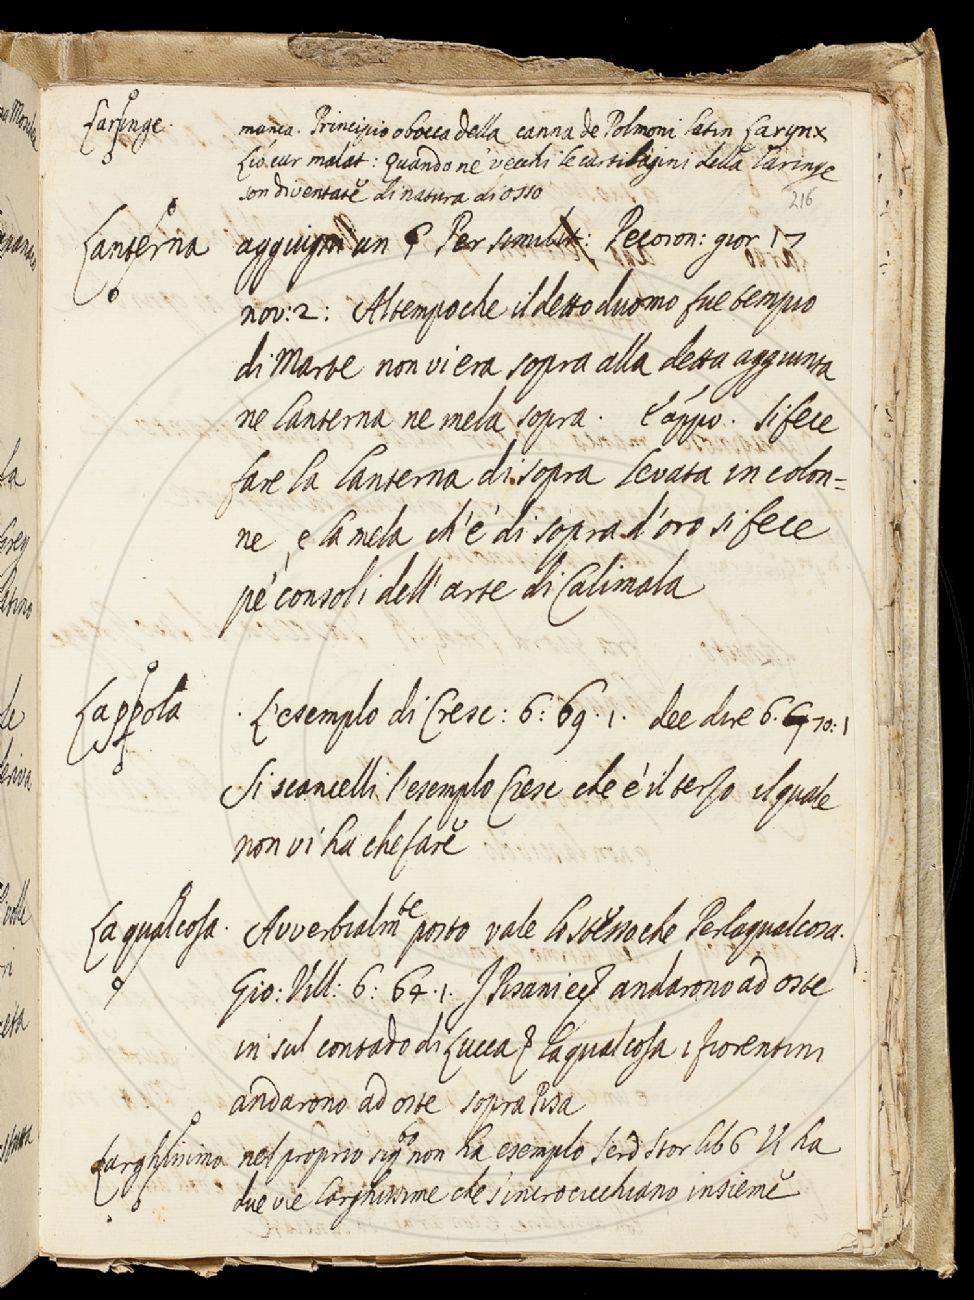 Laringe. manca. Principio o bocca della canna de Polmoni Latin Larynx
Lib. cur malat: quando ne' vecchi le cartilagini della Laringe
son diventate di natura di osso
216
Lanterna aggiugni un § Per similit: Pecoron: gior 17
nov: 2: Al tempo che il detto duomo fue tempio
di Marte non vi era sopra alla detta aggiunta
ne lanterna ne mela sopra. E appo. si fece
fare la lanterna di sopra levata in colon=
ne e la mela ch'è di sopra d'oro si fece
pe' consoli dell'arte di Calimala
Lappola . L'esemplo di Cresc: 6: 69. 1. dee dire 6. 70: 1
Si scancelli l'esemplo Cresc che è il terzo il quale
non vi ha che fare
La qual cosa. Avverbialmte posto vale lo stesso che Perlaqualcosa.
Gio: Vill: 6: 64. 1. I Pisani andarono ad oste
in sul contado di Lucca la qual cosa i fiorentini
andarono ad oste sopra Pisa
Larghissimo nel proprio sigo non ha esemplo Serd Stor lib 6 Vi ha
due vie larghissime che s'incrocicchiano insieme